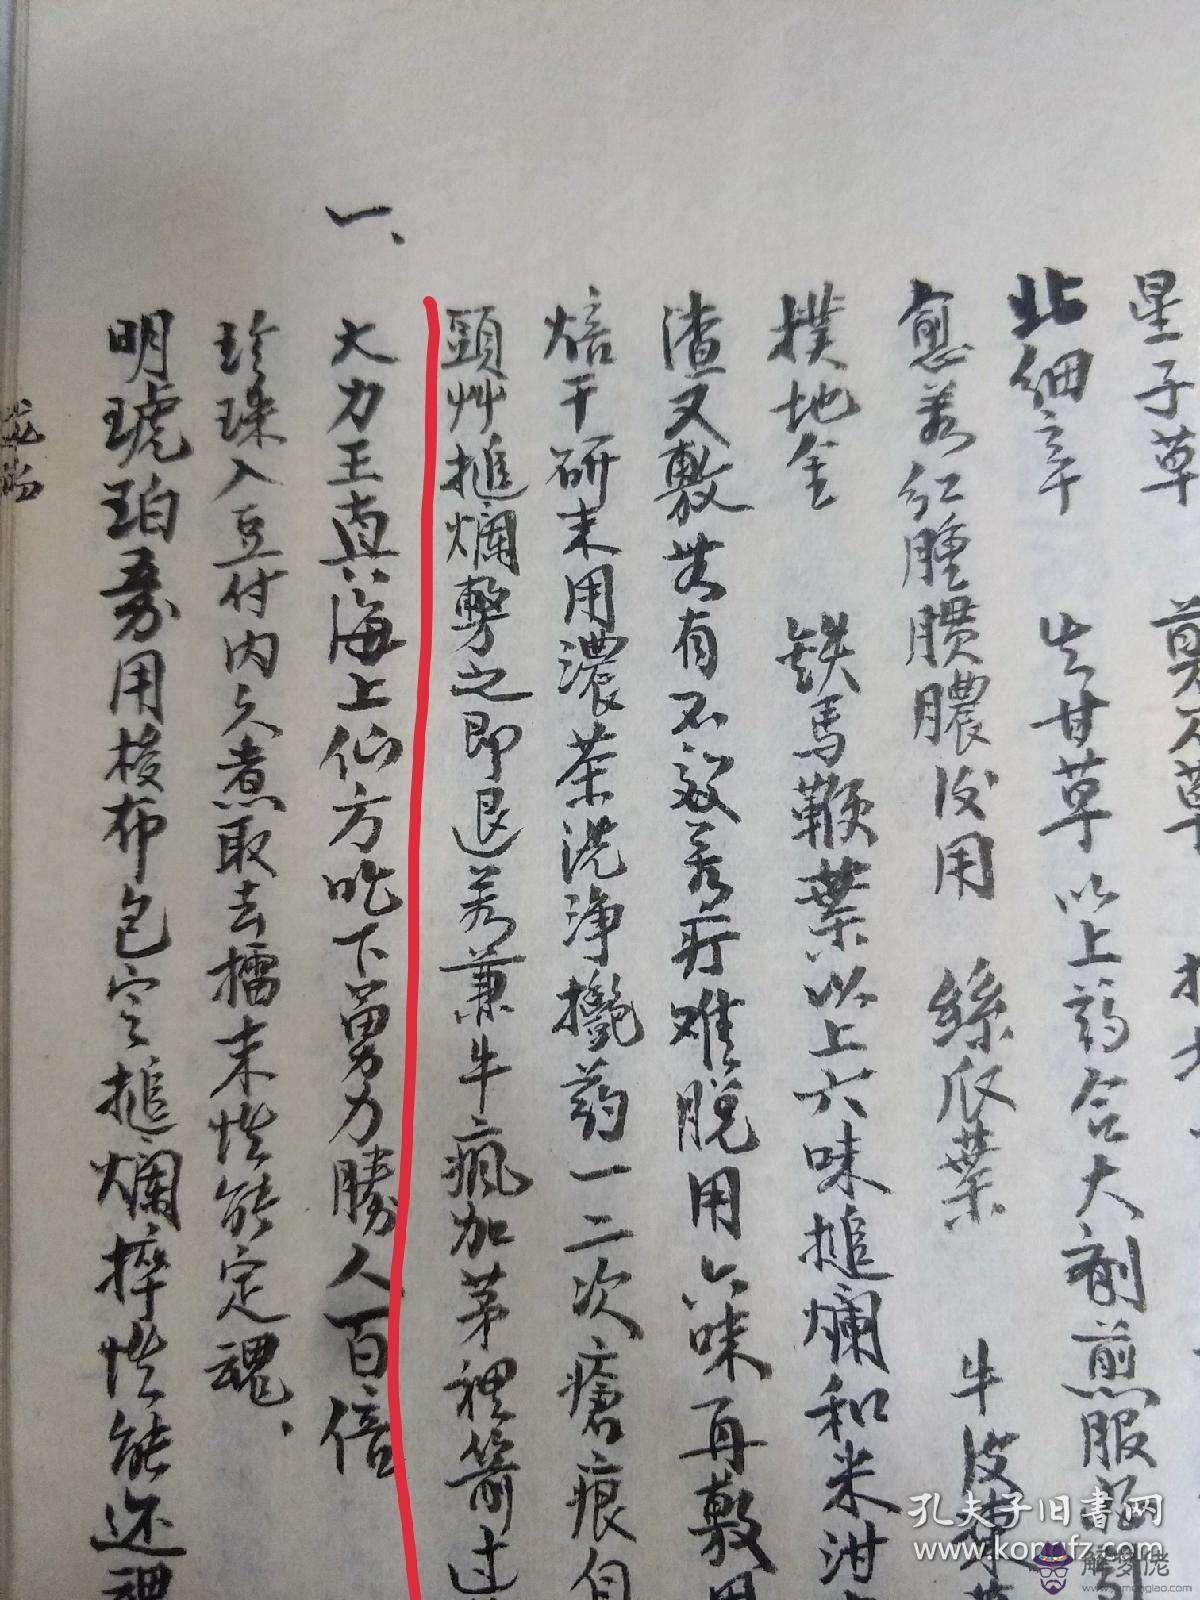 星子草
北細辛 生甘草以上药合大劑煎服
愈若红腫膿後用 絲瓜葉 牛皮凍
撲地金 鉄馬鞭葉以上六味搥爛和米泔
渣又敷若有不效若疔难脱用六味再敷
焙干研末用濃茶洗净搽药一二次瘡痕自
頭艸搥爛之即退若兼牛瘋加茅裡箭过
一、大力王真海上仙方吃下勇力勝人百倍
珍珠入豆付内久煮取去擂末性能定魂、
明琥珀用梭布包定搥爛性能还裡
孔夫子旧书网
www.kongfz.com
解梦佬
www.jiemonglao.com